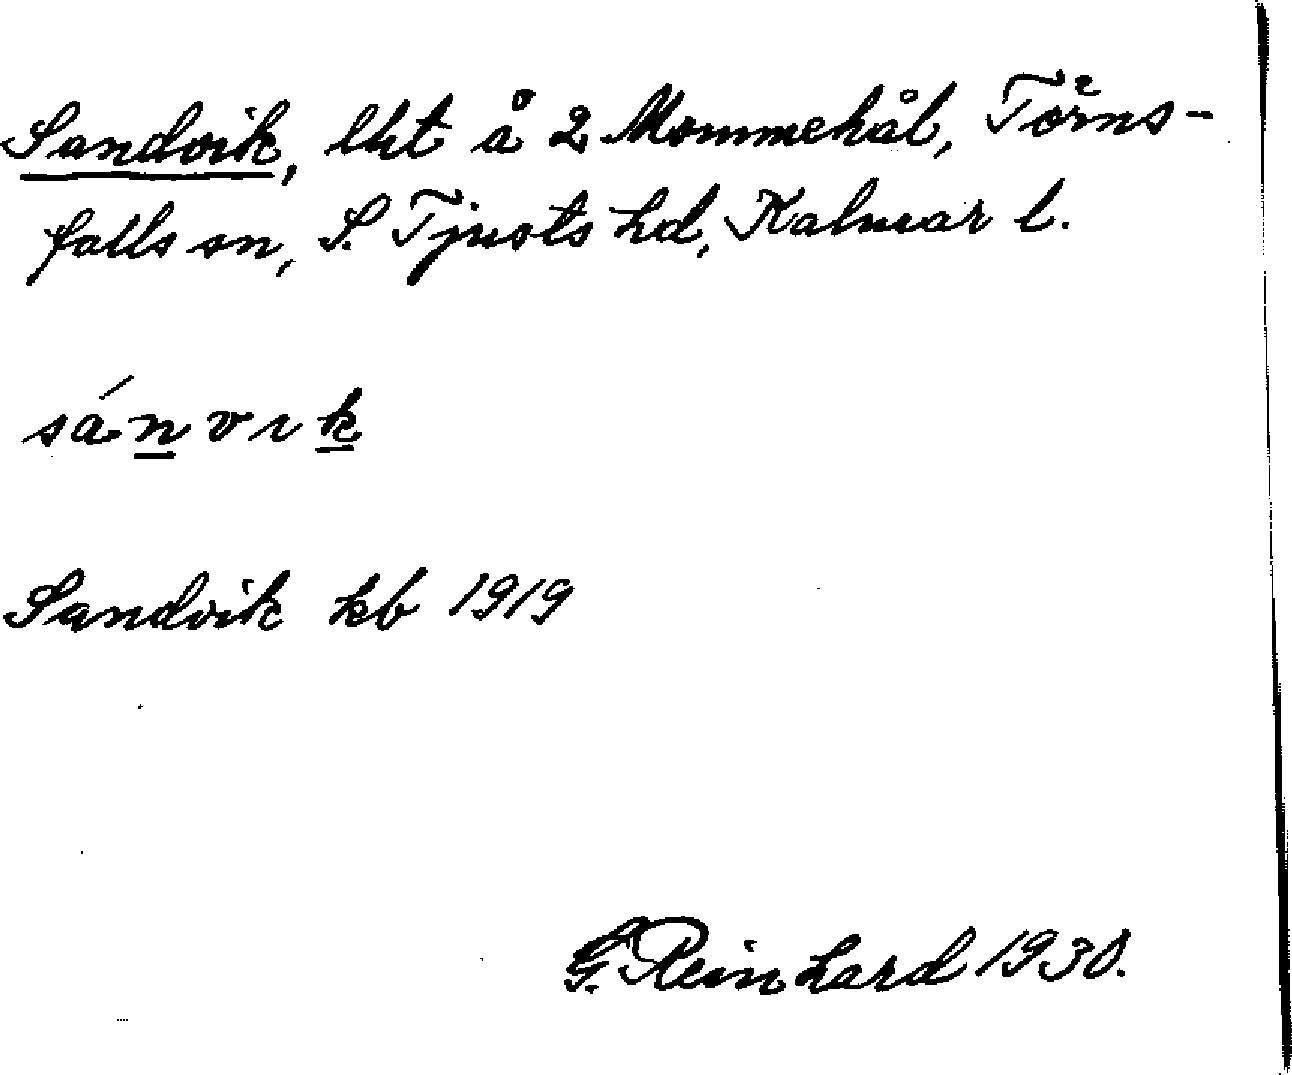 Sandvik, lht å 2 Mommehål, Törns-
falls sn, S. Tjusts hd, Kalmar l.
sá.nvık
Sandvik kb 1919
G. Reinhard 1930.